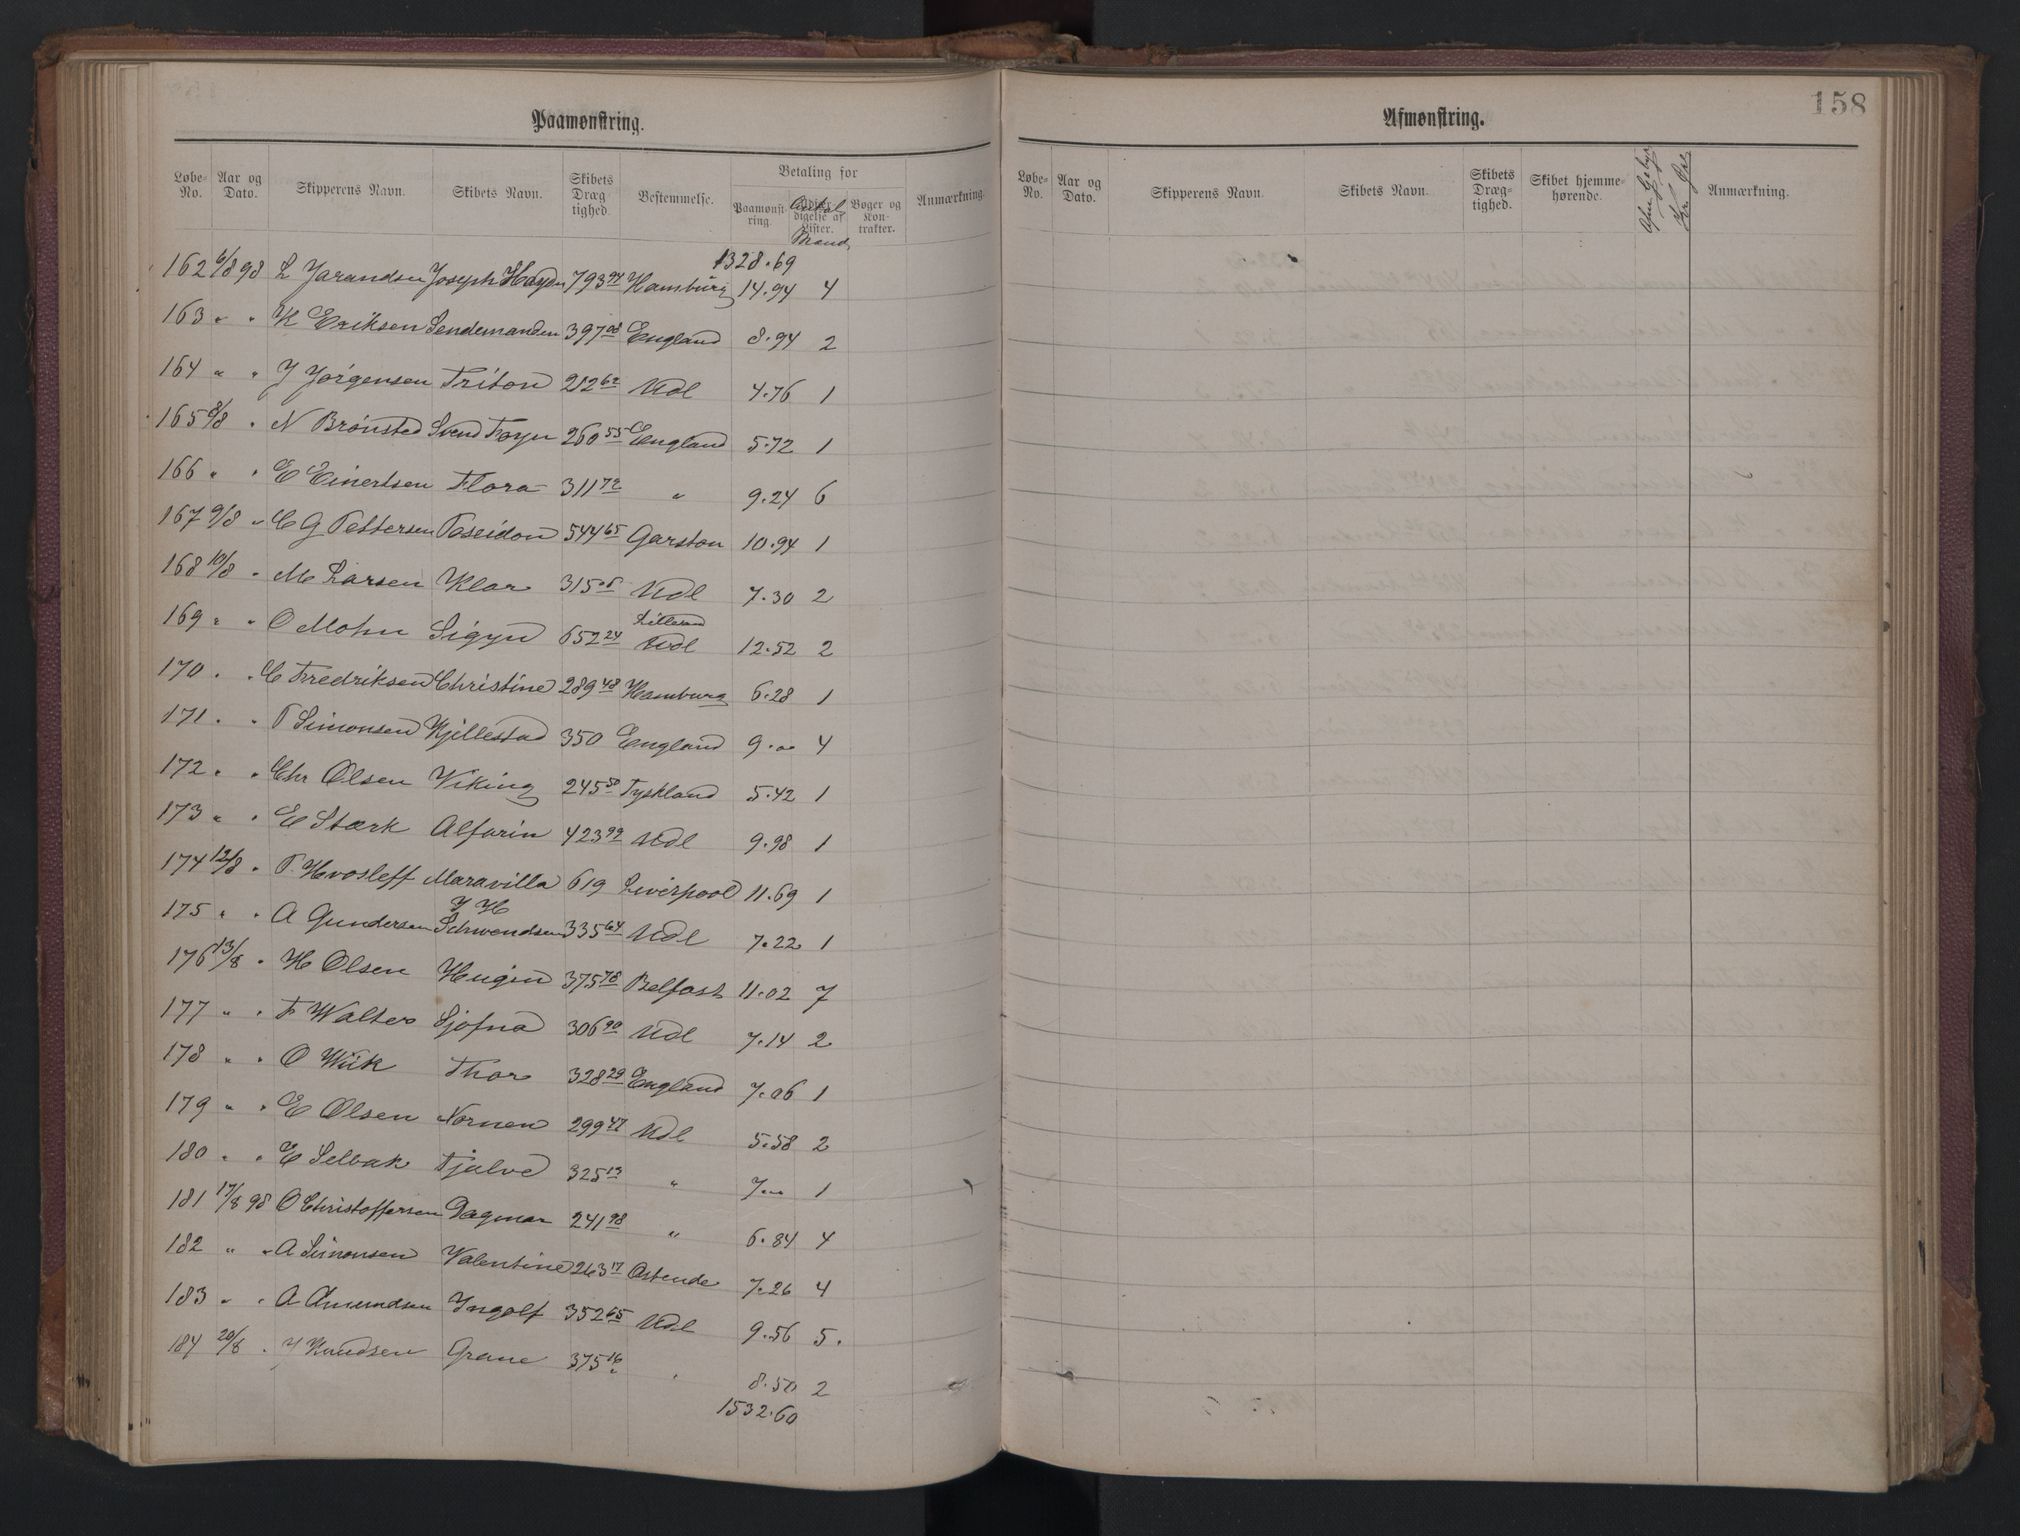 158
Paamønstring.
Løbe-No. Aar og Dato. Skipperens Navn. Skibets Navn. Skibets Drægtighed. Bestemmelse. Betaling for Paamønstring. Antal Mand Bøger og Kontrakter. Anmærkning.
1328.69
162 6/8 98 L Jarandsen Joseph Haydn 793 94 Hamburg 14.94 4
163 " " K Eriksen Sendemanden 397 08 England 8.94 2
164 " " J Jørgensen Triton 212 62 Udl 4.76 1
165 8/8 " N Brønsted Svend Foyn 260 55 England 5.72 1
166 " " E Einertsen Flora 311 72 " 9.24 6
167 9/8 " C G Pettersen Poseidon 544 65 Garston 10.94 1
168 10/8 " M Larsen Klar 315 05 Udl 7.30 2
169 " " O Mohn Sigyn 652 24 Lillesand Udl 12.52 2
170 " " C Fredriksen Christine 289 48 Hamburg 6.28 1
171 " " P Simonsen Kjillestad 350 England 9.00 4
172 " " Chr Olsen Viking 245 50 Tyskland 5.42 1
173 " " E Stærk Alfarin 423 99 Udl 9.98 1
174 12/8 " P. Hvosleff Maravilla 619 Liverpool 11.69 1
175 " " A Gundersen J H Schwendsen 335 64 Udl 7.22 1
176 13/8 " H Olsen Hugin 375 78 Belfast 11.02 7
177 " " F Walter Sjofna 306 90 Udl 7.14 2
178 " " O Wiik Thor 328 29 England 7.06 1
179 " " E Olsen Nornen 299 47 Udl 5.58 2
180 " " E Selbak Tjalve 325 13 " 7.00 1
181 17/8 98 O Christoffersen Dagmar 241 98 " 6.84 4
182 " " A Simonsen Valentine 263 17 Ostende 7.26 4
183 " " A Amundsen Ingolf 352 65 Udl 9.56 5.
184 20/8 " J Knudsen Grane 375 16 " 8.50 2
1532.60
Afmønstring.
Løbe-No. Aar og Dato. Skipperens Navn. Skibets Navn. Skibets Drægtighed. Skibet hjemmehørende. Anmærkning.